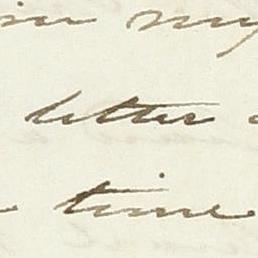 in my
letter
time